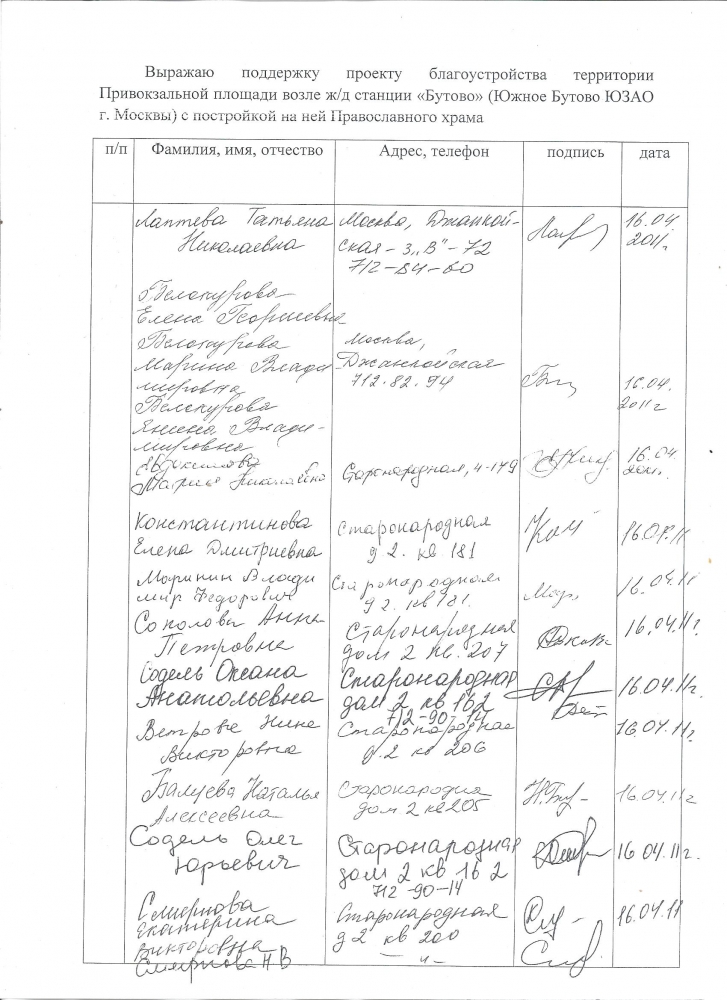 Выражаю поддержку проекту благоустройства территории
Привокзальной площади возле ж/д станции «Бутово» (Южное Бутово ЮЗАО
г. Москвы) с постройкой на ней Православного храма
п/п Фамилия, имя, отчество Адрес, телефон подпись дата
Лаптева Татьяна Москва, Джанкой- 16.04
Николаевна ская - 3 „В" - 72 2011г.
712-84-60
Белокурова
Елена Георгиевна
Белокурова Москва,
Марина Влади- Джанкойская
мировна 712.82.94 16.04.
Белокурова 2011г
Янина Влади-
мировна 16.04
Мария Николаевна Старонародная, 4-179 2011г.
Константинова Старонародная
Елена Дмитриевна д 2. кв. 181 16.04.11
Маринин Влади Старонародная
мир Федорович д 2. кв 181. 16.04.11
Соколова Анна Старонародная 16.04.11г.
Петровна дом 2 кв. 207
Содель Оксана Старонародная
Анатольевна дом 2 кв 162 16.04.11г.
712-90-14
Ветрова Нина Старонародная 16.04.11г.
Викторовна д.2 кв 206
Балуева Наталья Старонародна
Алексеевна дом 2 кв 205 16.04.11г
Содель Олег Старонародная
Юрьевич дом 2 кв 162 16.04.11г.
712-90-14
Смирнова Старонародная 16.04.11
Екатерина д 2 кв 200
Викторовна
Смирнова Н В — " —